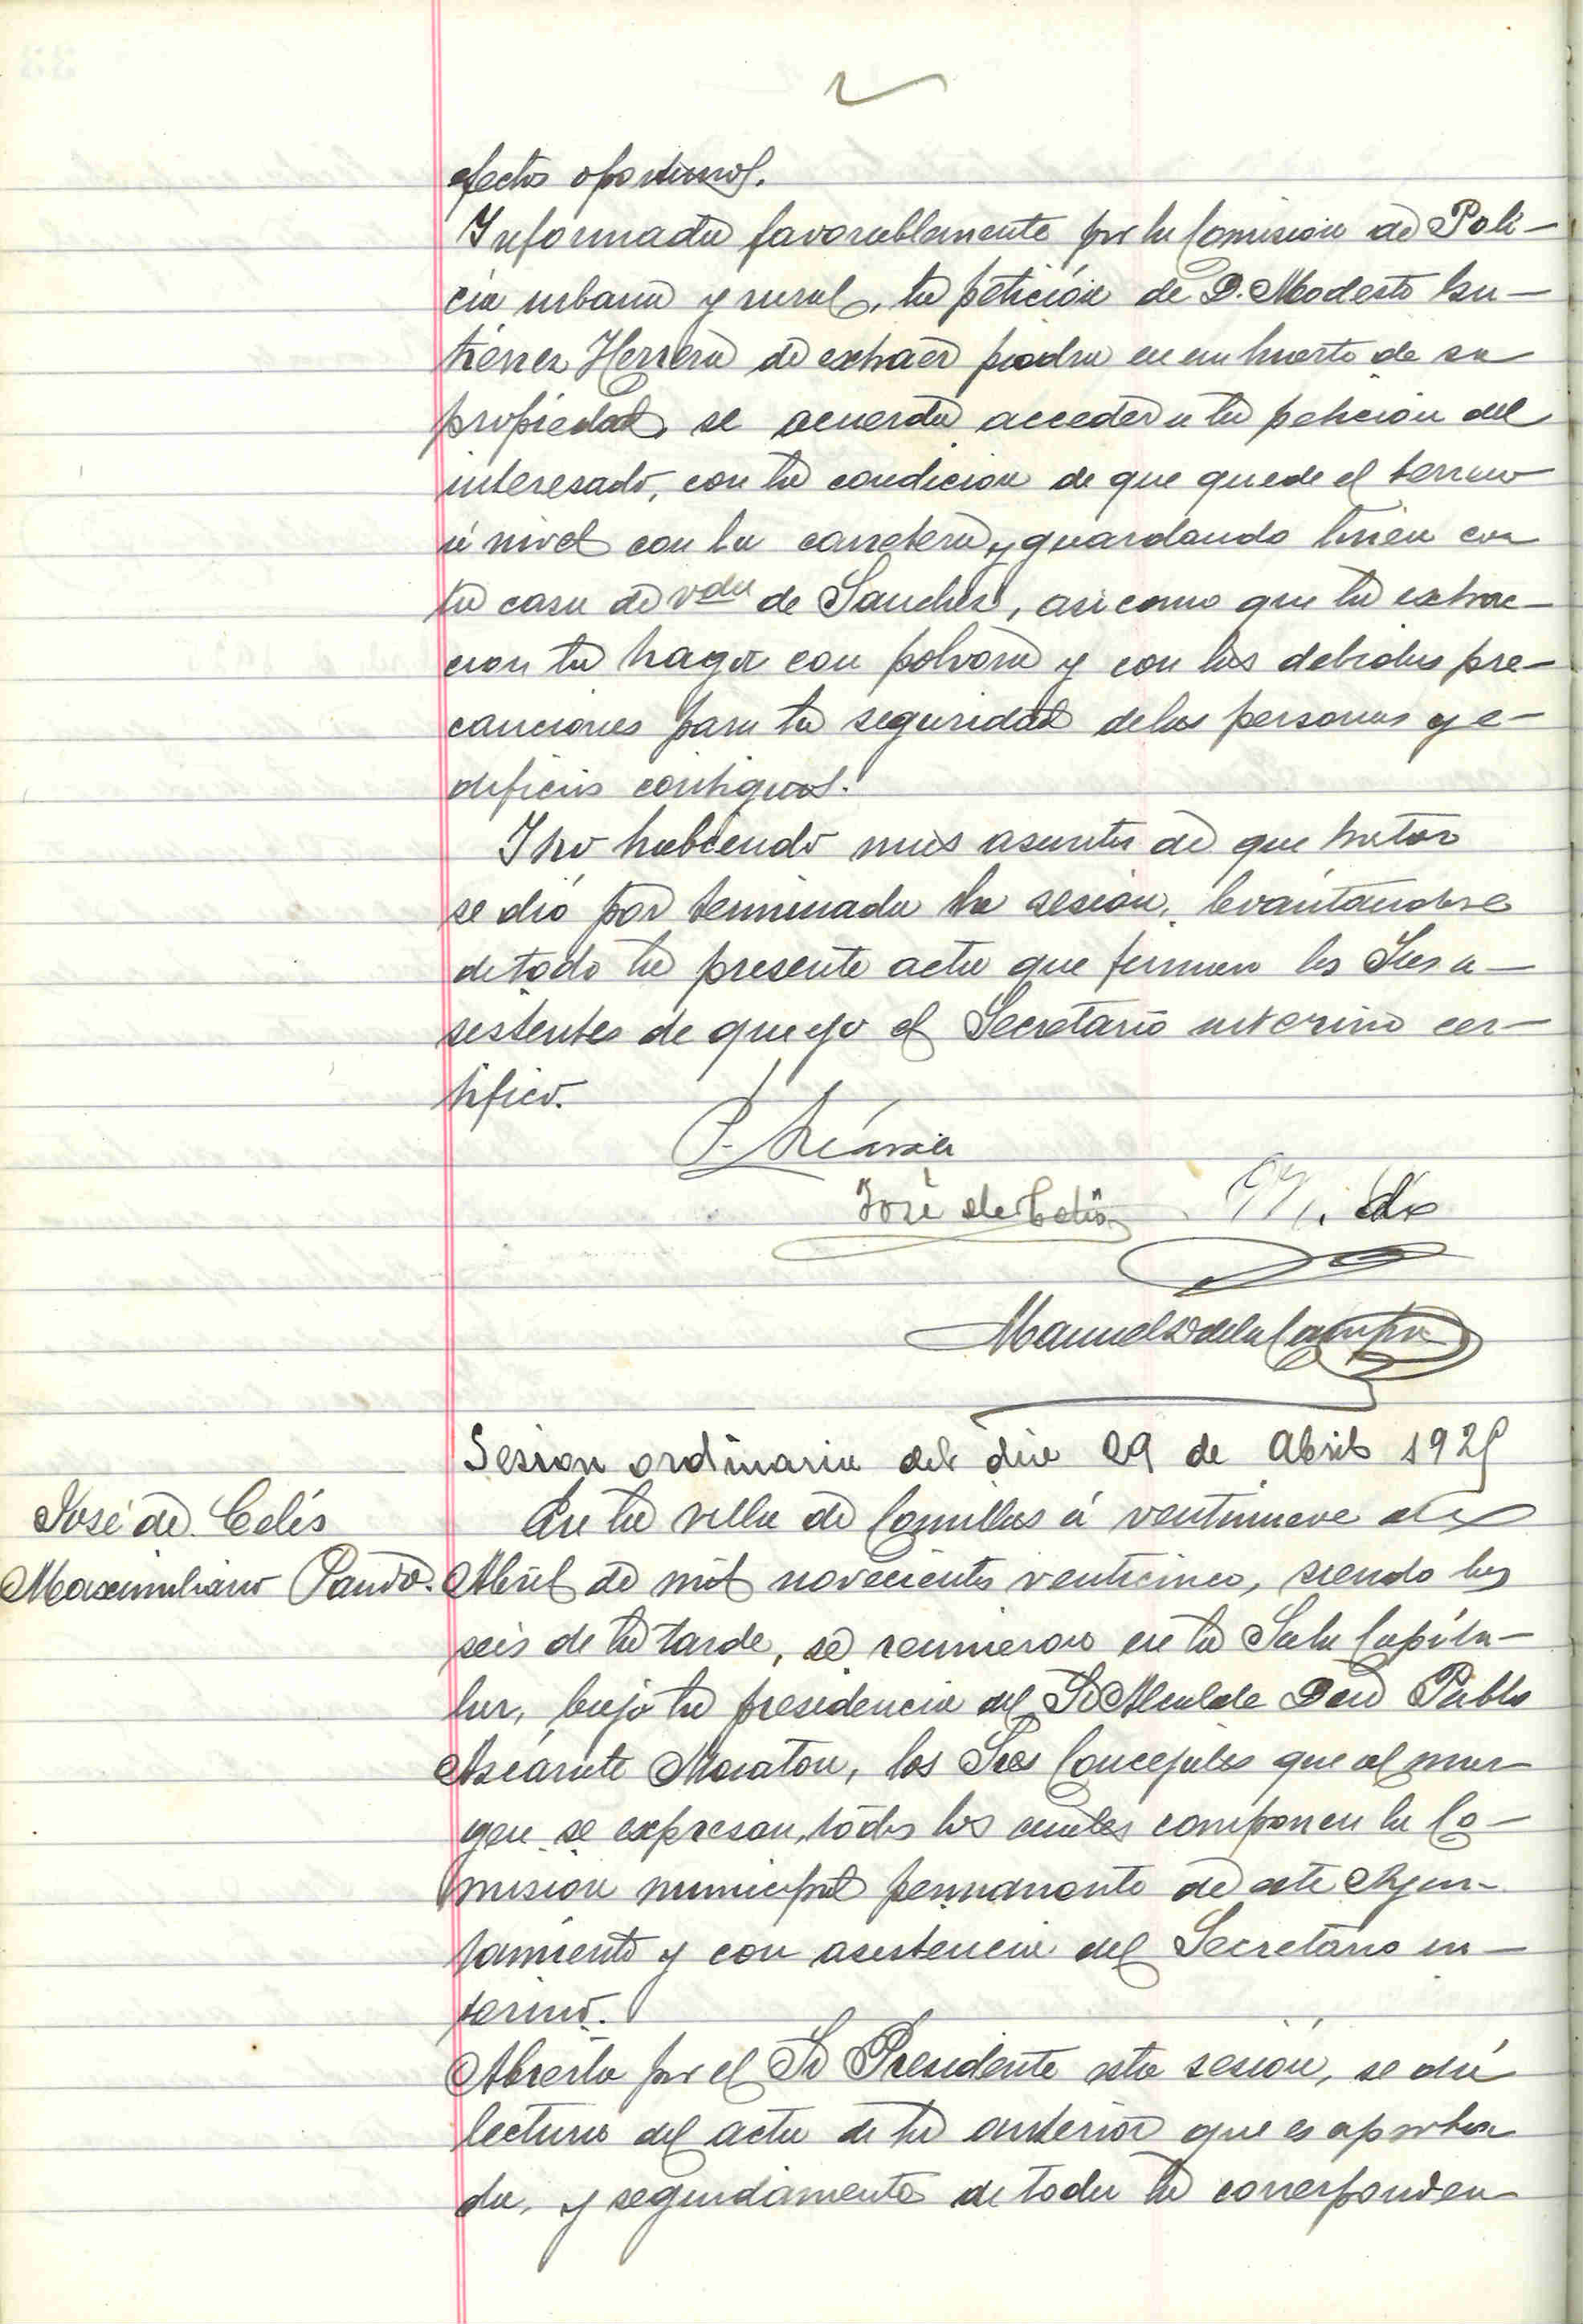 efectos oportunos.
Informada favorablemente por la Comision de Poli-
cia urbana y rural, la petición de D. Modesto Gu-
tiérrez Herrera de extraer piedra en un huerto de su
propiedad, se acuerda acceder a la peticion del
interesado, con la condicion de que quede el terreno
á nivel con la carretera y guardando linea con
la casa de vda de Sanchez, asi como que la extrac-
cion la haga con polvora y con las debidas pre-
cauciones para la seguridad de las personas y e-
dificios contiguos.
Y no habiendo mas asuntos de que tratar
se dió por terminada la sesion, levantandose
de todo la presente acta que firman los Sres a-
sistentes de que yo el Secretario interino cer-
tifico.
José de Celis
Manuel de la Campa
Sesion ordinaria del dia 29 de Abril 1925
José de Celis
Maximiliano Pando.
En la villa de Comillas á ventinueve de
Abril de mil novecientos venticinco, siendo las
seis de la tarde, se reunieron en la Sala Capitu-
lar, bajo la presidencia del Sr Alcalde Don Pablo
Azcárate Moraton, los Sres Concejales que al mar-
gen se expresan, todos los cuales componen la Co-
mision municipal permanente de este Ayun-
tamiento y con asistencia del Secretario in-
terino.
Abierta por el Sr Presidente esta sesión, se dió
lectura del acta de la anterior que es aproba
da, y seguidamente de toda la corresponden